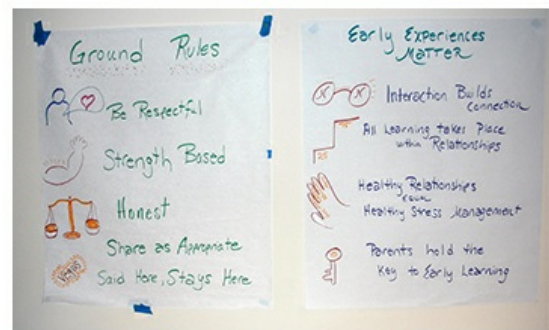 Ground Rules
Be Respectful
Strength Based
Honest
Share as Appropriate
Said Here, Stays Here
Early Experiences
Matter
Interaction Builds
connection
All Learning takes Place
within Relationships
Healthy Relationships
equal
Healthy Stress Management
Parents hold the
Key to Early Learning